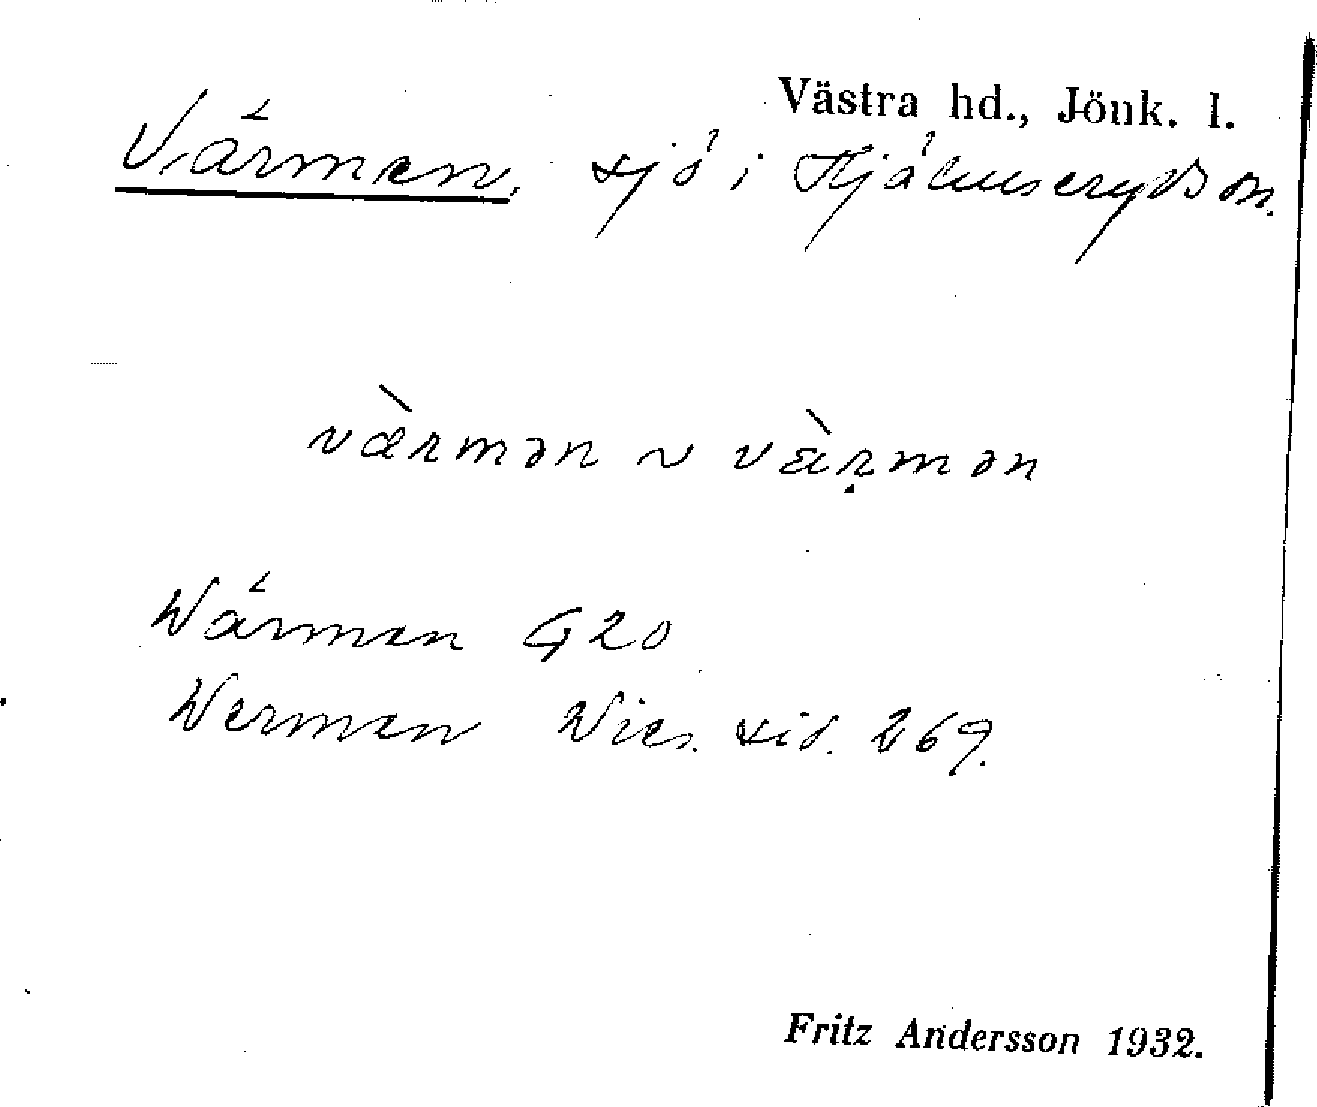 Västra hd., Jönk. l.
Värmen, sjö i Hjälmseryds sn.
vær̀mən ~ väṛ̀mən
Wärmen G20
Wermen Wies. sid. 269.
Fritz Andersson 1932.